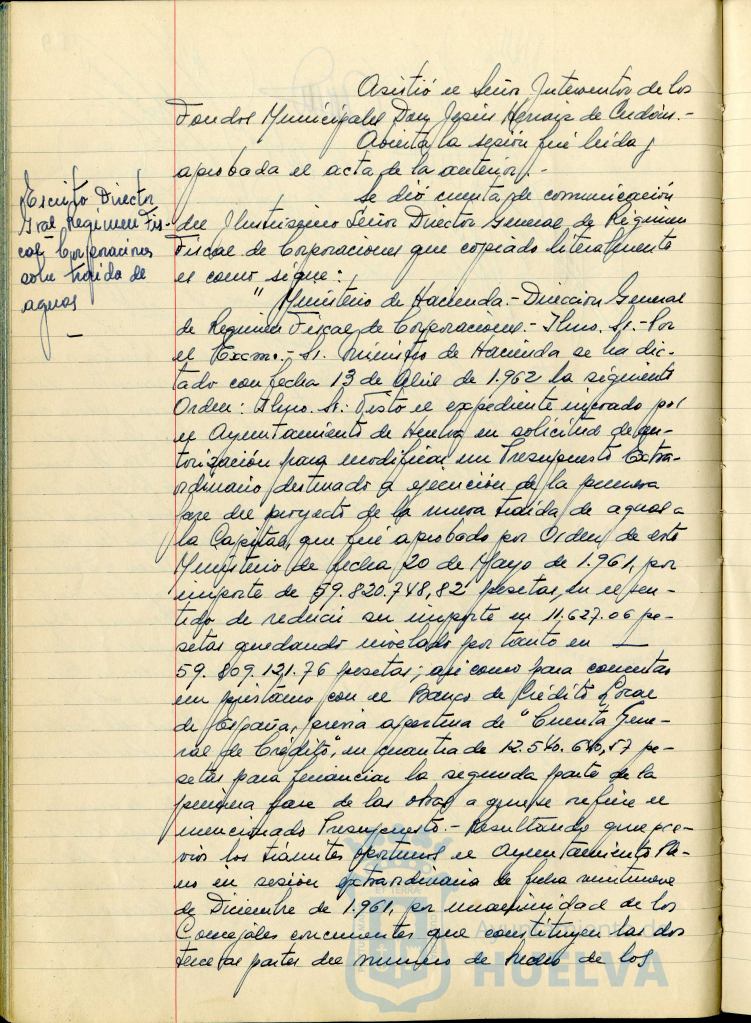 Asistió el Señor Interventor de los
Fondos Municipales Don Jesús Hernaiz de
Abierta la sesión fué leida y
aprobada el acta de la anterior.-
Se dió cuenta de comunicación
del Ilustrisimo Señor Director General de Régimen
Fiscal de Corporaciones que copiado literalmente
es como sigue:
"Ministerio de Hacienda.- Dirección General
de Regimen Fiscal de Corporaciones.- Ilmo. Sr.- Por
el Excmo.- Sr. Ministro de Hacienda se ha dic-
tado con fecha 13 de Abril de 1.962 la siguiente
Orden: Ilmo. Sr.: Visto el expediente incoado por
el Ayuntamiento de Huelva en solicitud de au-
torización para modificar un Presupuesto Extra-
ordinario destinado a ejecución de la primera
fase del proyecto de la nueva traida de aguas a
la Capital, que fué aprobado por Orden de este
Ministerio de fecha 20 de Mayo de 1.961, por
importe de 59.820.748,82 pesetas, en el sen-
tido de reducir su importe en 11.627.06 pe-
setas quedando nivelado por tanto en —
59.809.121.76 pesetas; asi como para concertar
un préstamo con el Banco de Crédito Local
de España, previa apertura de "Cuenta Gene-
ral de Crédito", en cuantia de 12.540.640,57 pe-
setas para financiar la segunda parte de la
primera fase de las obras a que se refiere el
mencionado Presupuesto.- Resultando que pre-
vios los trámites oportunos el Ayuntamiento Ple-
no en sesión extraordinaria de fecha veintinueve
de Diciembre de 1.961, por unanimidad de los
Concejales concurrentes que constituyen las dos
terceras partes del número de hecho de los
Escrito Director
Gral Regimen Fis-
cal Corporaciones
sobre traida de
aguas
—
Ayuntamiento de
HUELVA